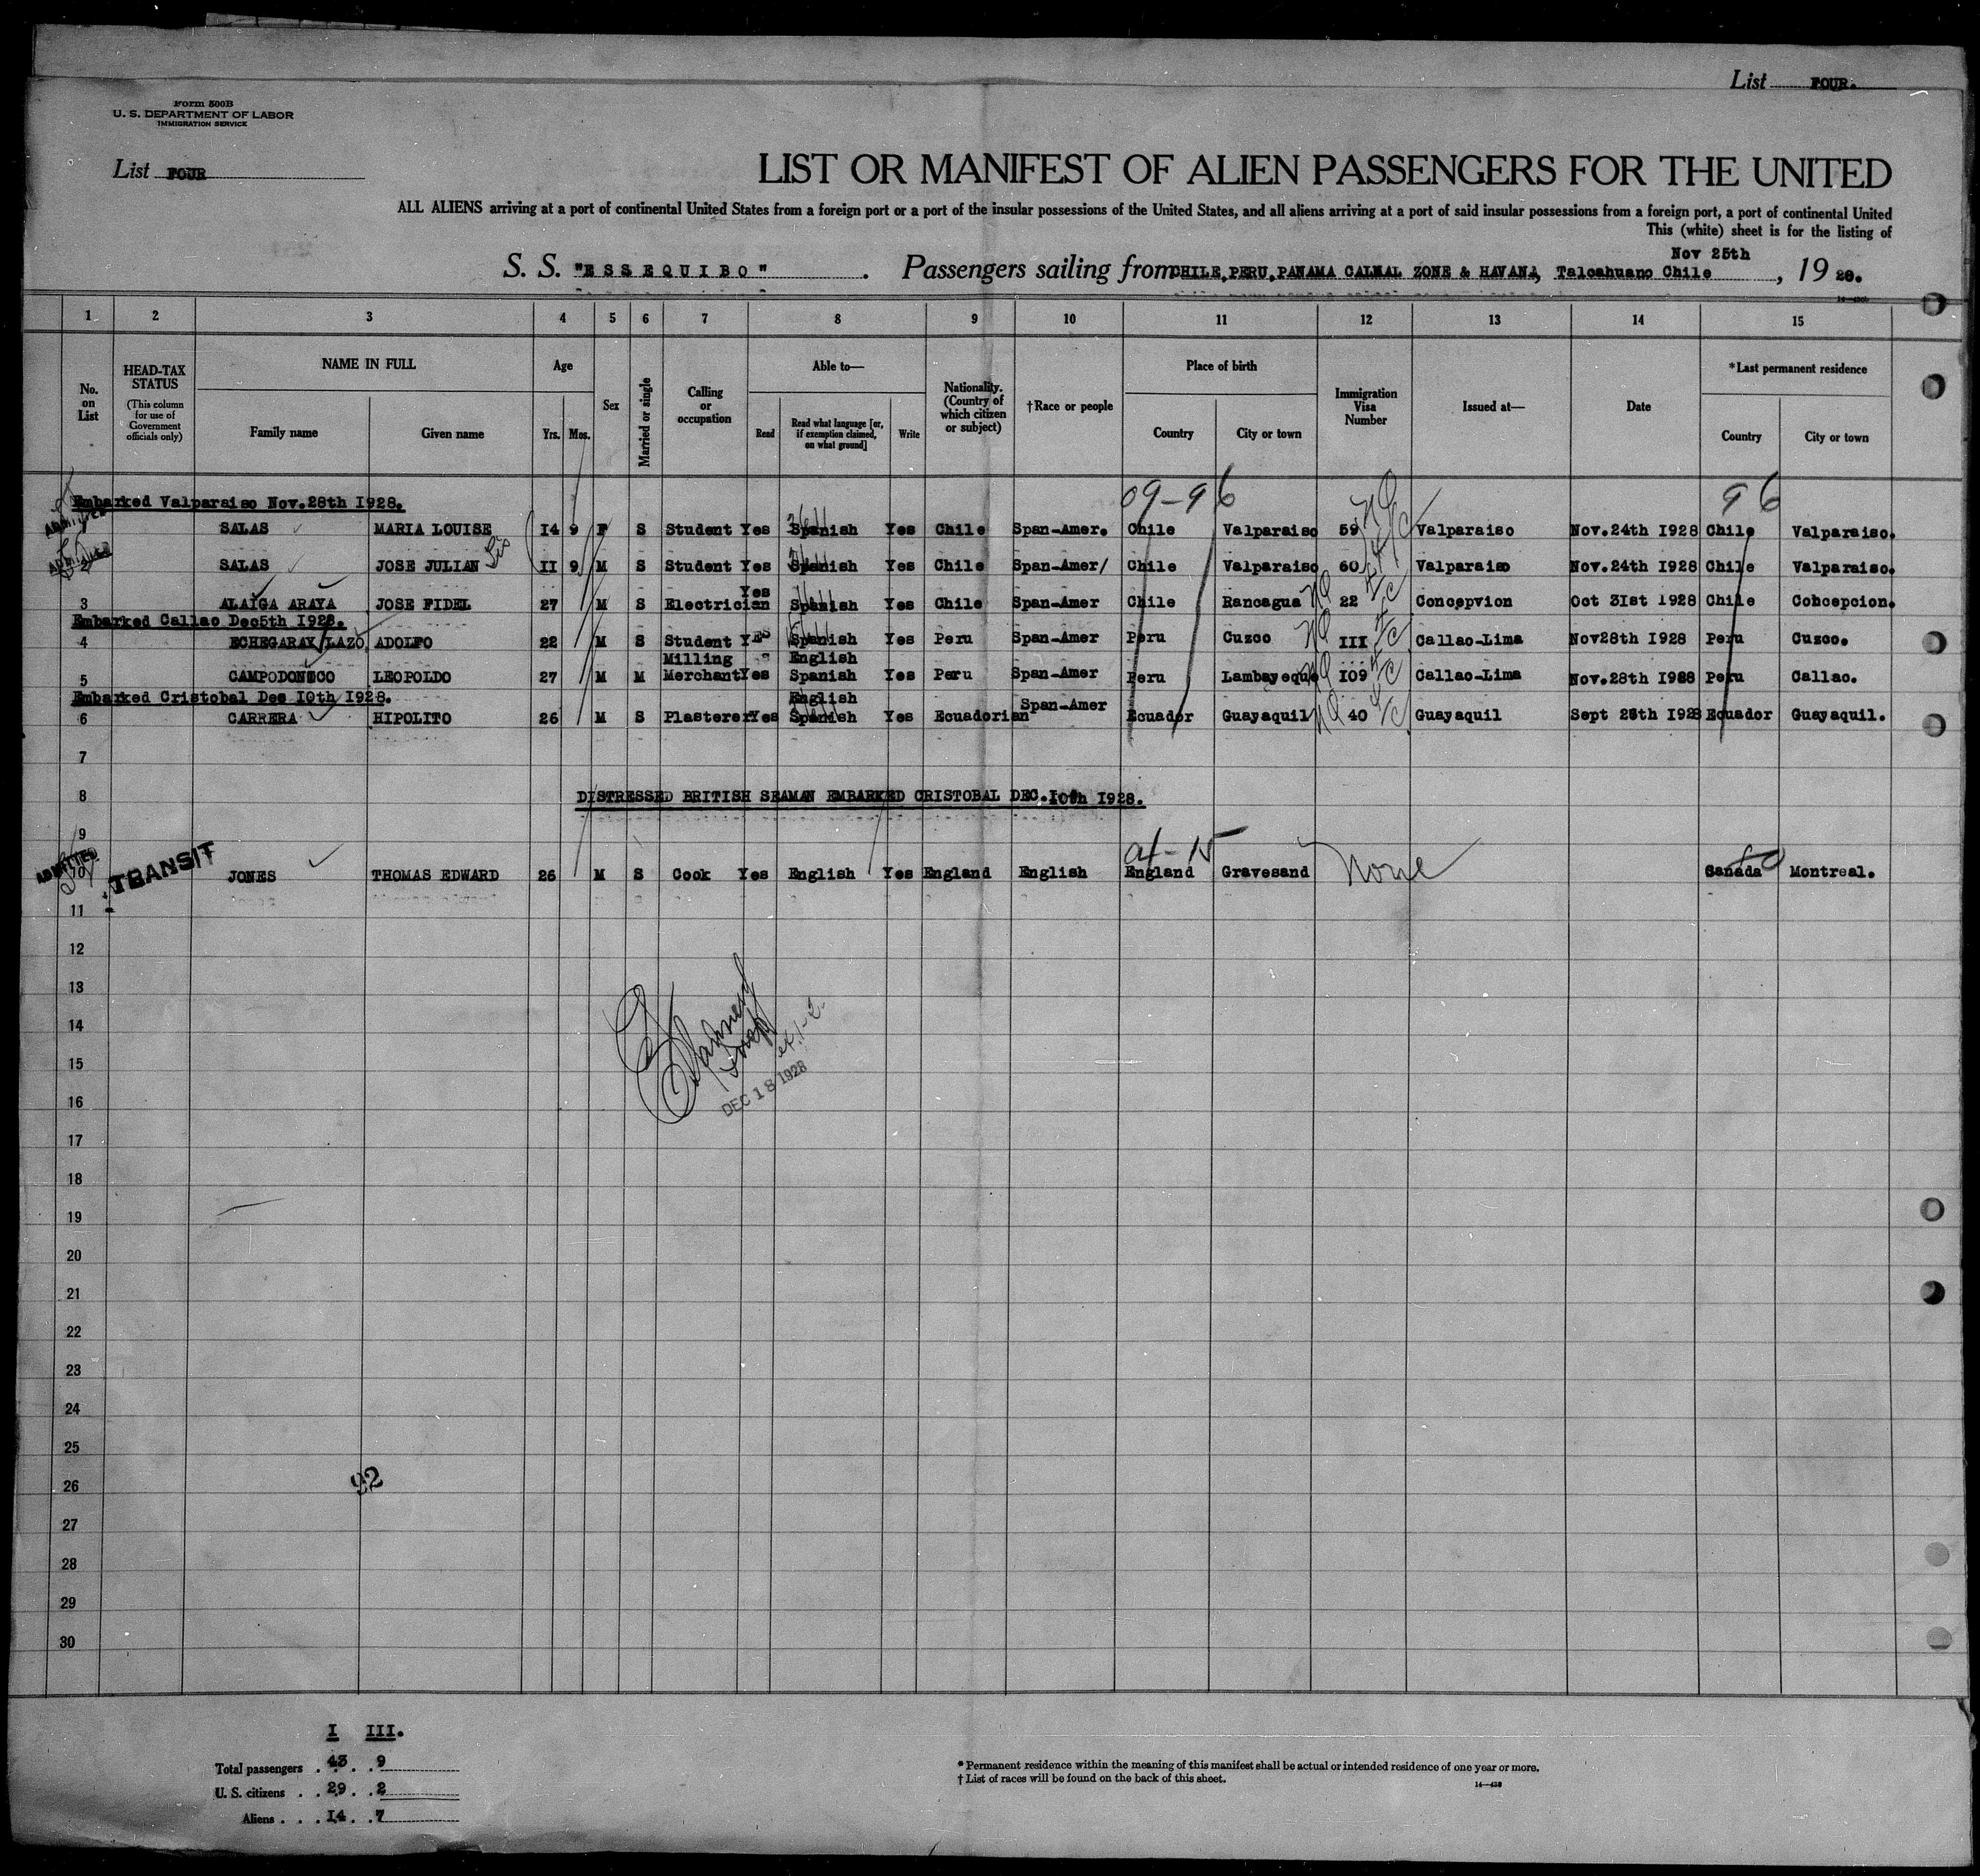 List FOUR.
Form 500B
U. S. DEPARTMENT OF LABOR
IMMIGRATION SERVICE
List FOUR
LIST OR MANIFEST OF ALIEN PASSENGERS FOR THE UNITED
ALL ALIENS arriving at a port of continental United States from a foreign port or a port of the insular possessions of the United States, and all aliens arriving at a port of said insular possessions from a foreign port, a port of continental United
This (white) sheet is for the listing of
Nov 25th
S. S. "ESSEQUIBO" . Passengers sailing from CHILE,PERU,PANAMA CALNAL ZONE & HAVANA, Talcahuano Chile , 19 28.
1 2 3 4 5 6 7 8 9 10 11 12 13 14 15
No. on List
HEAD-TAX STATUS
(This column for use of Government officials only)
NAME IN FULL
Family name Given name
Age
Yrs. Mos.
Sex
Married or single
Calling or occupation
Able to—
Read
Read what language [or, if exemption claimed, on what ground]
Write
Nationality. (Country of which citizen or subject)
†Race or people
Place of birth
Country City or town
Immigration Visa Number
Issued at—
Date
*Last permanent residence
Country City or town
09-96 96
Embarked Valparaiso Nov.28th 1928.
ADMITTED SALAS MARIA LOUISE 14 9 F S Student Yes Spanish Yes Chile Span-Amer. Chile Valparaiso 59 Valparaiso Nov.24th 1928 Chile Valparaiso.
ADMITTED 2 SALAS JOSE JULIAN 11 9 M S Student Yes Spanish Yes Chile Span-Amer/ Chile Valparaiso 60 Valparaiso Nov.24th 1928 Chile Valparaiso.
3 ALAIGA ARAYA JOSE FIDEL 27 M S Electrician Yes Spanish Yes Chile Span-Amer Chile Rancagua NQ 22 Concepvion Oct 31st 1928 Chile Concepcion.
Embarked Callao Dec5th 1928.
4 ECHEGARAY/LAZO, ADOLFO 22 M S Student Yes Spanish Yes Peru Span-Amer Peru Cuzco NQ III Callao-Lima Nov28th 1928 Peru Cuzco.
Milling English
5 CAMPODONICO LEOPOLDO 27 M M Merchant Yes Spanish Yes Peru Span-Amer Peru Lambayeque NQ 109 Callao-Lima Nov.28th 1928 Peru Callao.
Embarked Cristobal Dec 10th 1928.
English
6 CARRERA HIPOLITO 26 M S Plasterer Yes Spanish Yes Ecuadorian Span-Amer Ecuador Guayaquil NQ 40 Guayaquil Sept 28th 1928 Ecuador Guayaquil.
7
8 DISTRESSED BRITISH SEAMAN EMBARKED CRISTOBAL DEC. 10th 1928.
9
ADMITTED 10 TRANSIT JONES THOMAS EDWARD 26 M S Cook Yes English Yes England English England Gravesand None Canada Montreal.
11
12
13
14
15
DEC 18 1928
16
17
18
19
20
21
22
23
24
25
26
92
27
28
29
30
I III.
Total passengers . 43. . 9
U. S. citizens . . 29 . . 2
Aliens . . . 14. . 7
* Permanent residence within the meaning of this manifest shall be actual or intended residence of one year or more.
† List of races will be found on the back of this sheet.
14—430